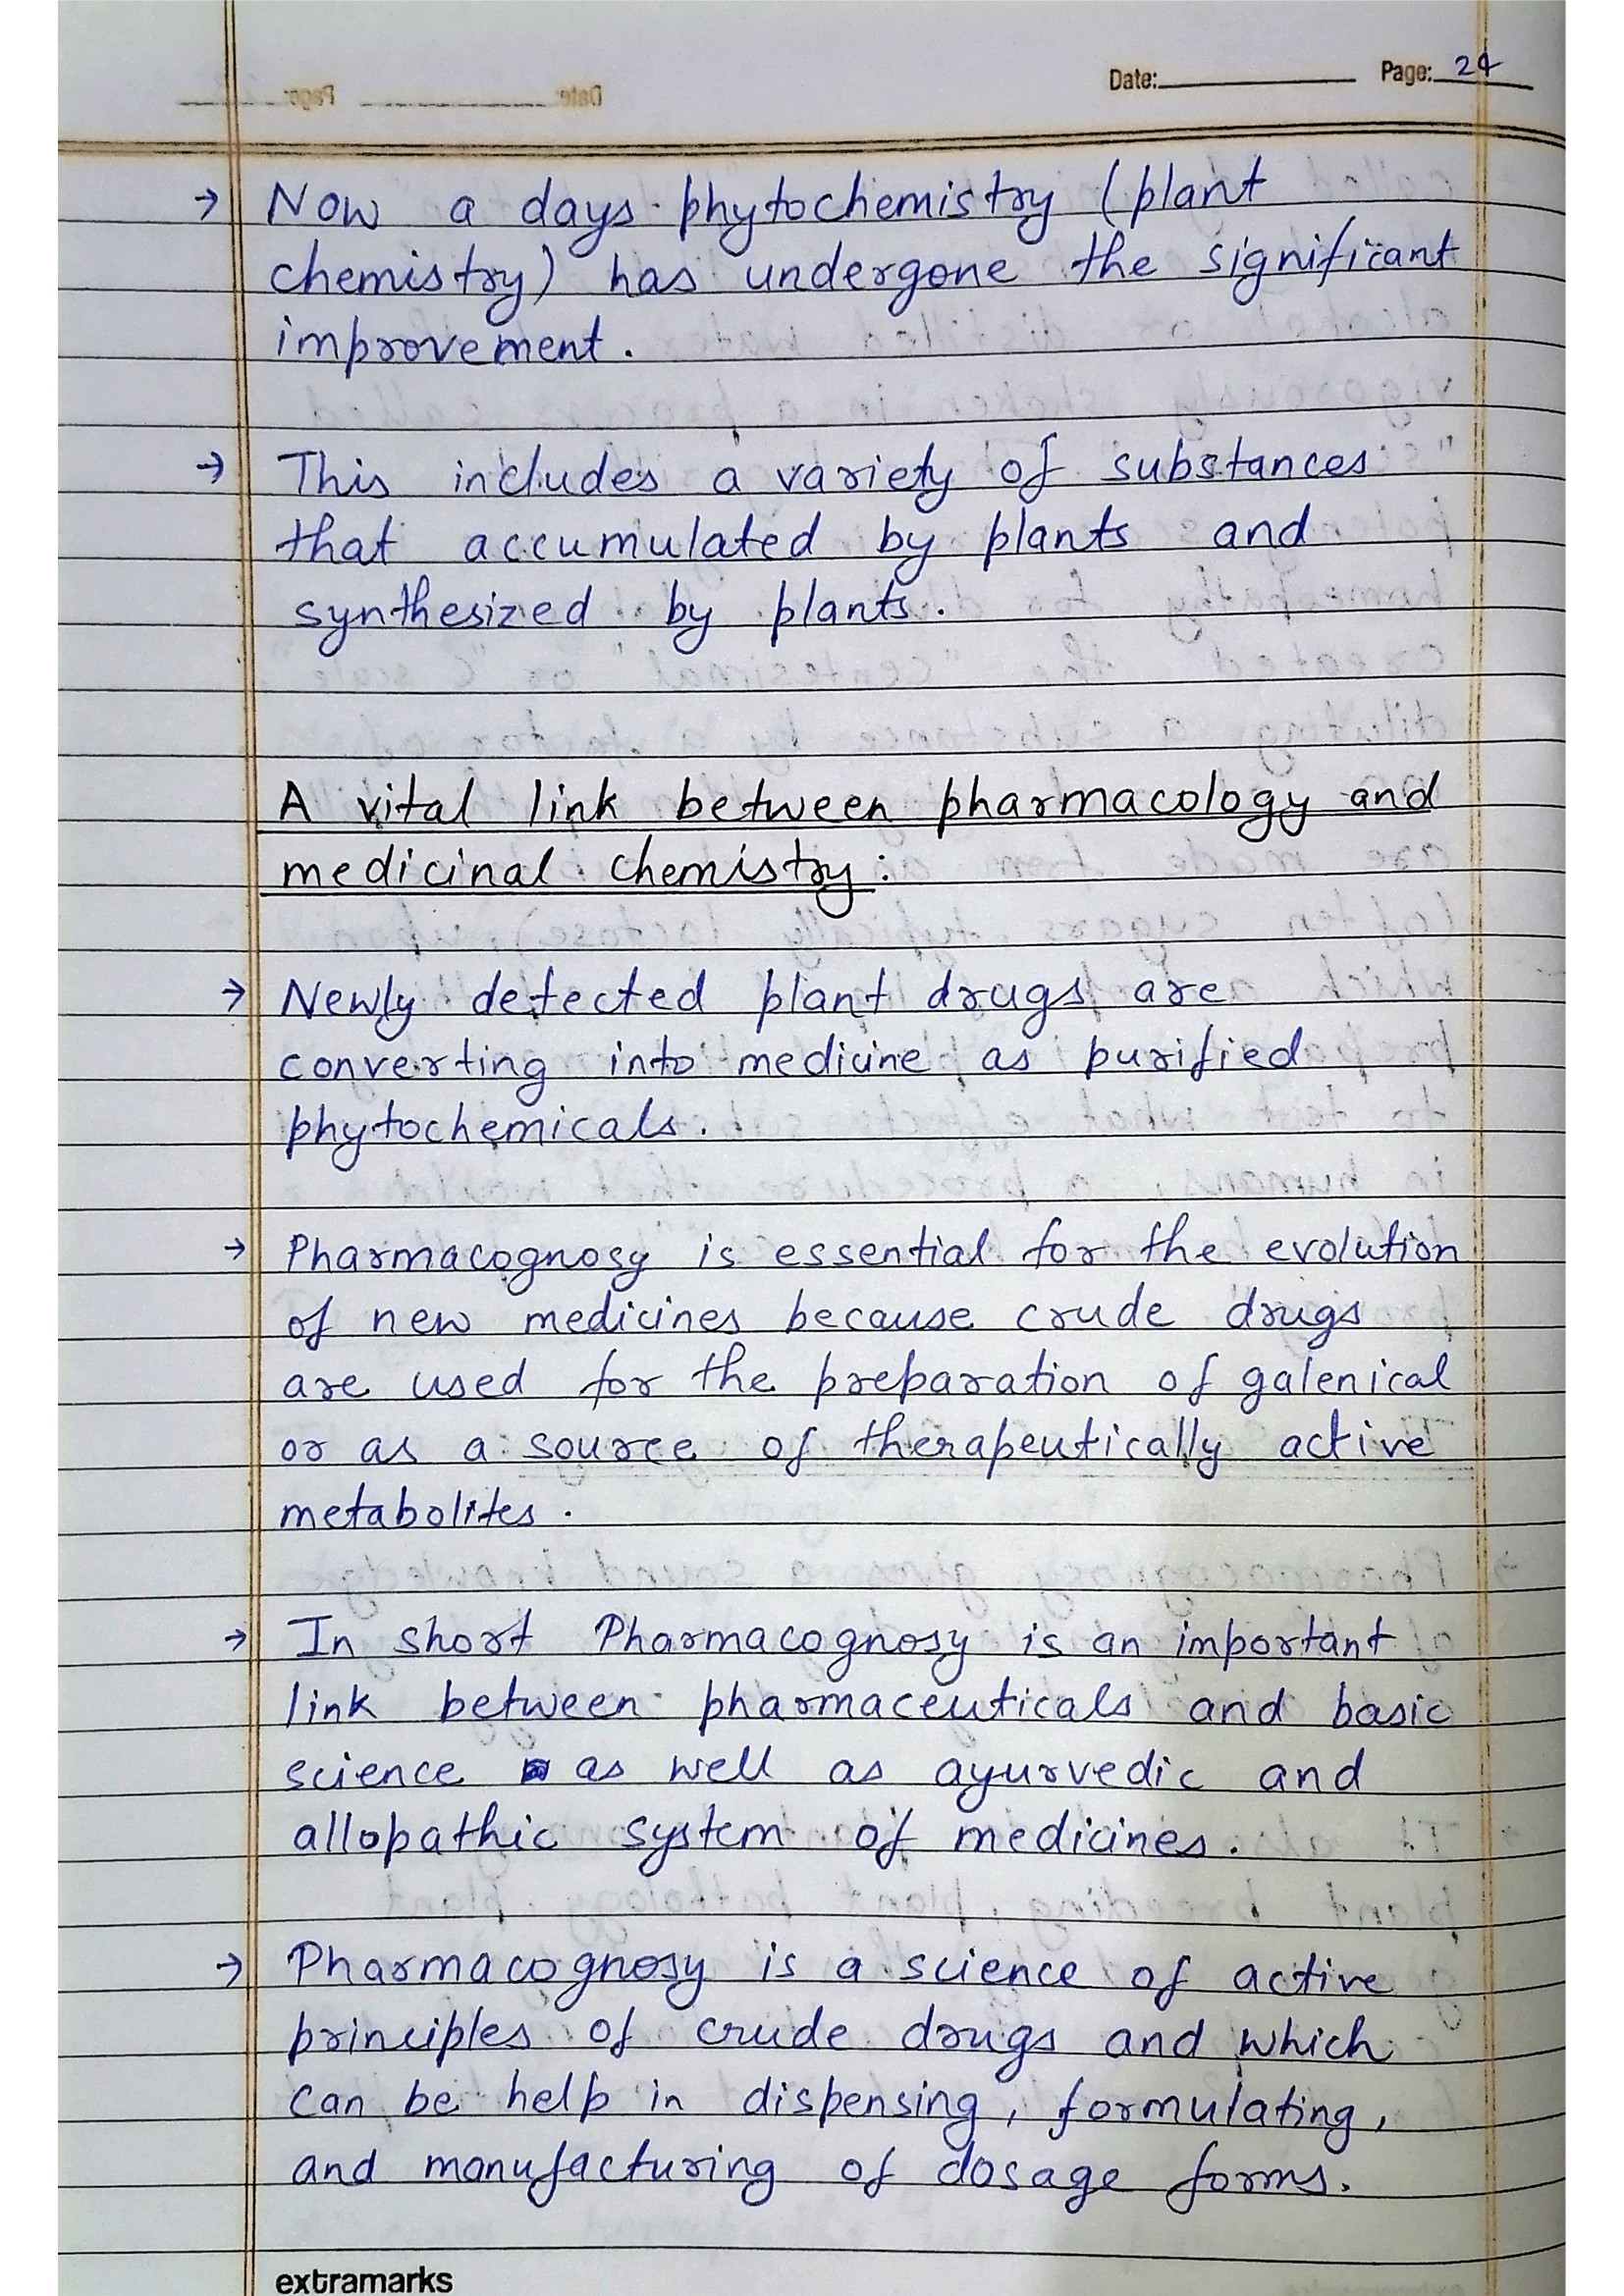 Date: Page: 24
→ Now a days phytochemistry (plant
chemistry) has undergone the significant
improvement.
→ This includes a variety of substances
that accumulated by plants and
synthesized by plants.
A vital link between pharmacology and
medicinal chemistry:
→ Newly detected plant drugs are
converting into medicine as purified
phytochemicals.
→ Pharmacognosy is essential for the evolution
of new medicines because crude drugs
are used for the preparation of galenical
or as a source of therapeutically active
metabolites.
→ In short Pharmacognosy is an important
link between pharmaceuticals and basic
science as well as ayurvedic and
allopathic system of medicines.
→ Pharmacognosy is a science of active
principles of crude drugs and which
can be help in dispensing, formulating,
and manufacturing of dosage forms.
extramarks